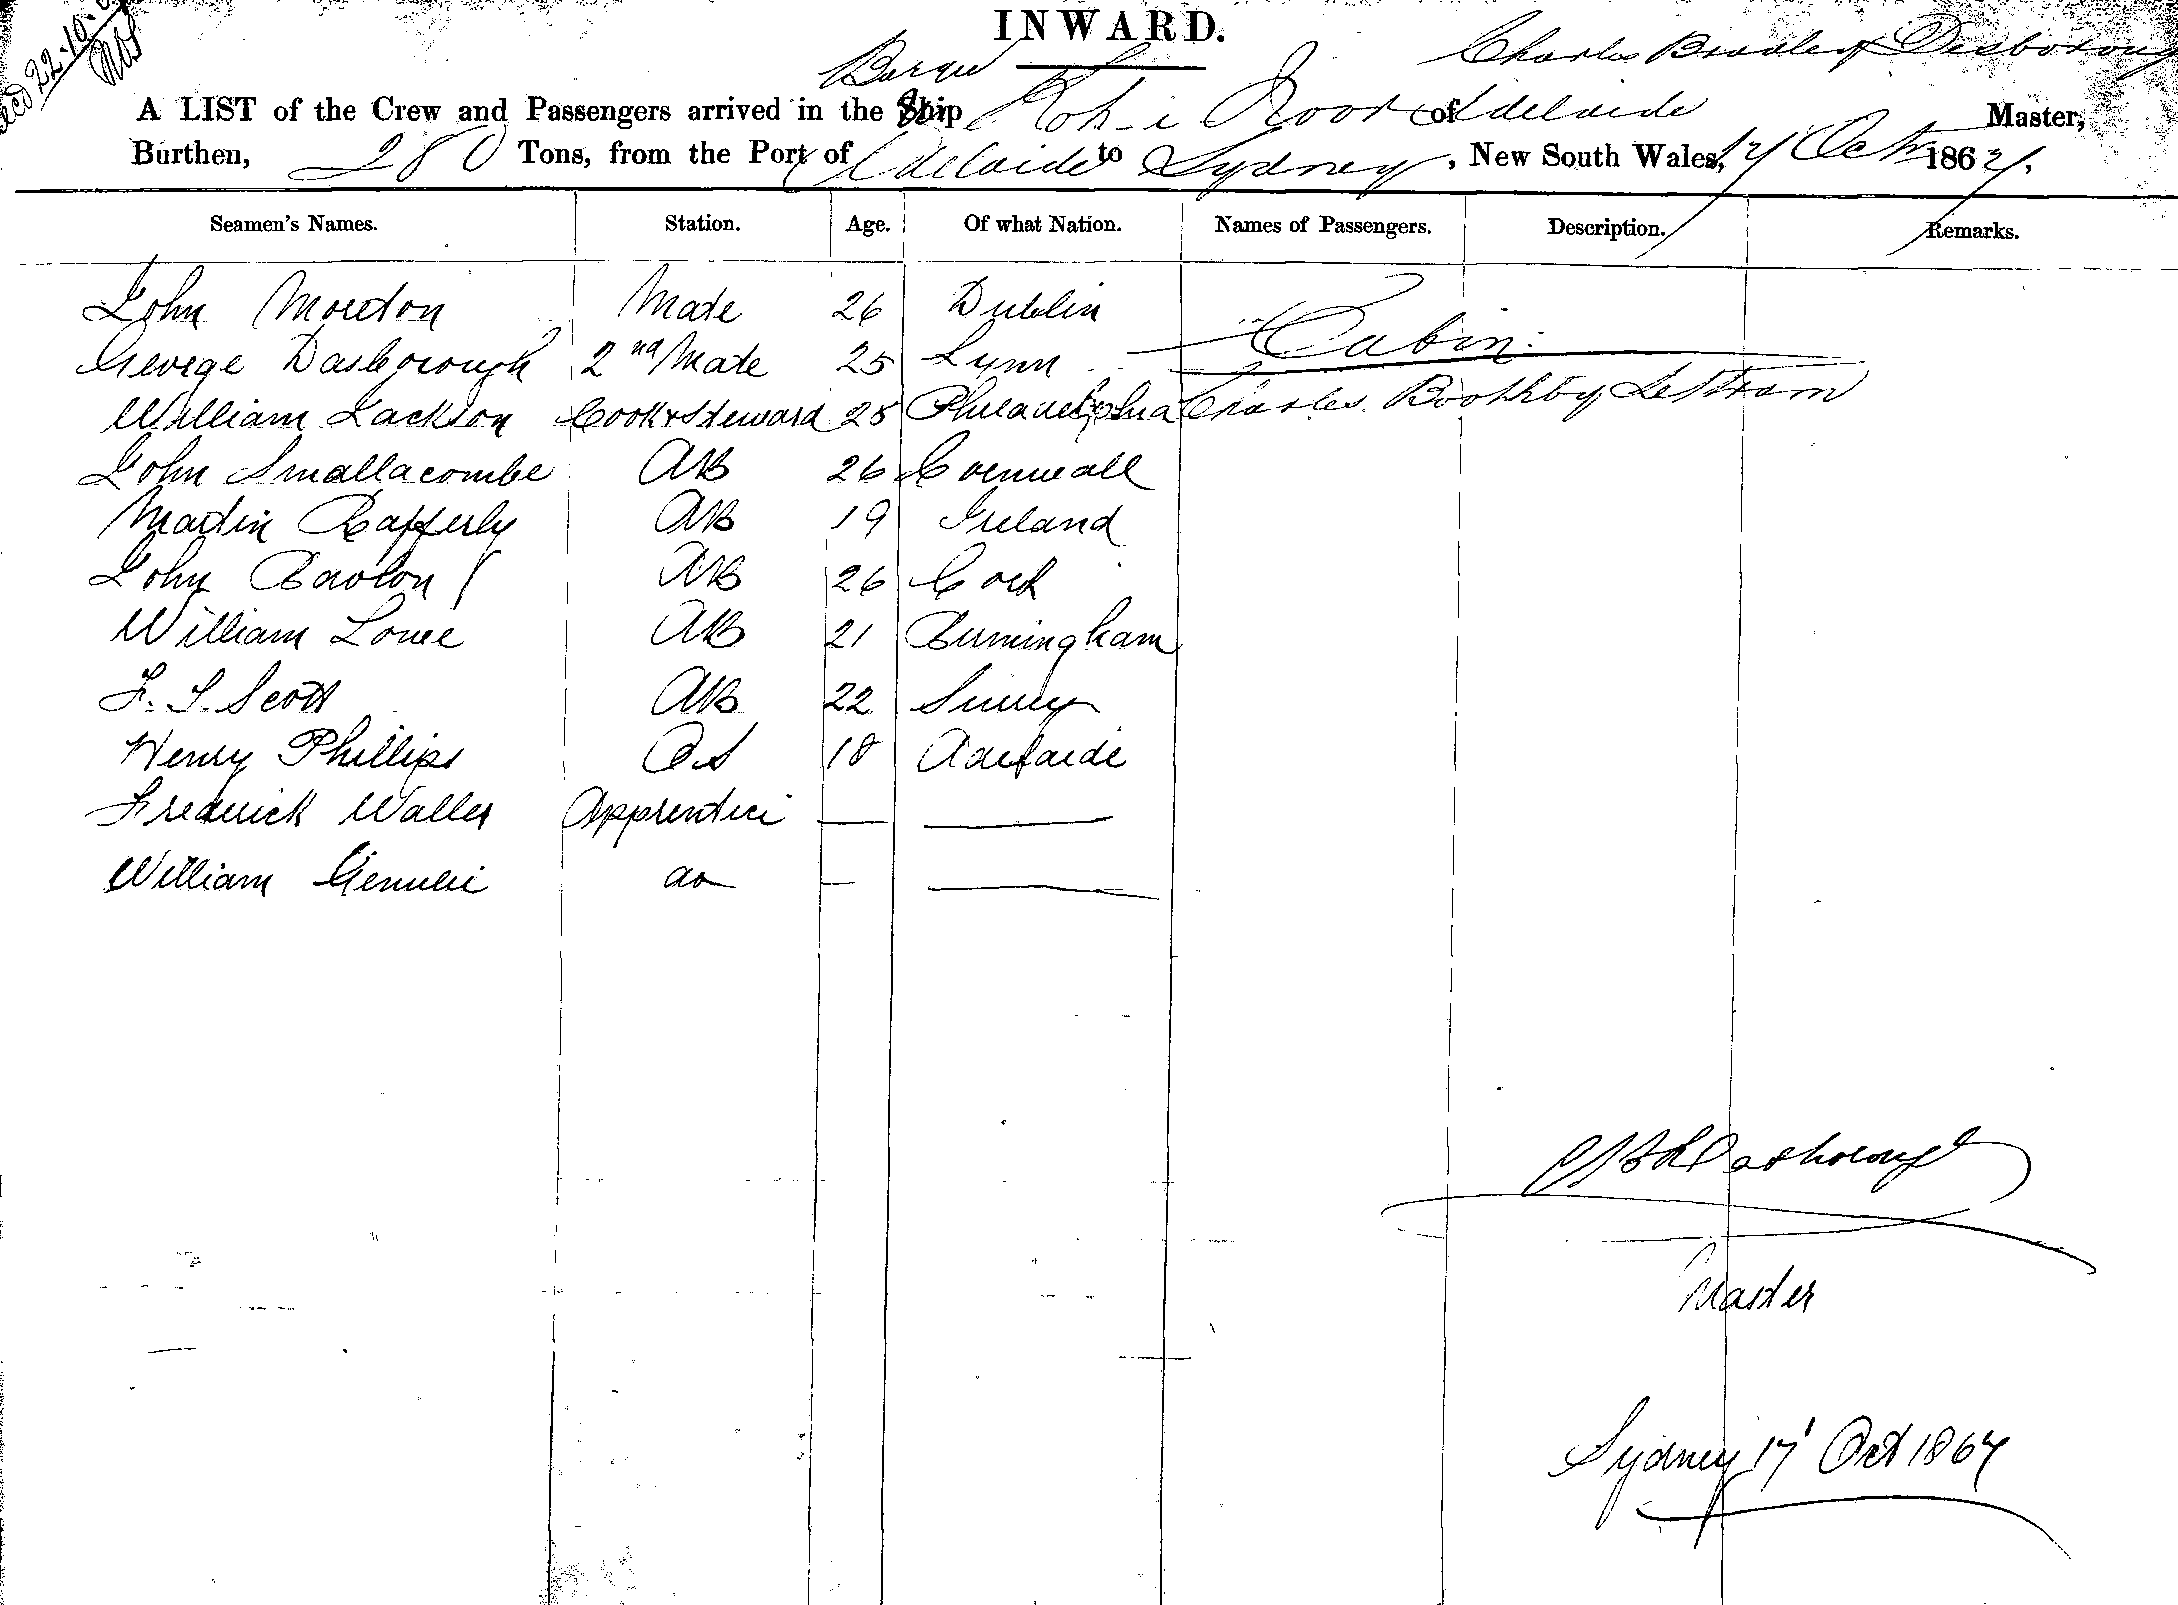 INWARD.
Charles Bradley Desborough
Barque
A LIST of the Crew and Passengers arrived in the Ship Koh-i Noor of Adelaide Master,
Burthen, 280 Tons, from the Port of Adelaide to Sydney, New South Wales, 17 Oct 1867.
Seamen's Names. Station. Age. Of what Nation. Names of Passengers. Description. Remarks.
John Moreton Mate 26 Dublin
Cabin.
George Dasborough 2nd Mate 25 Lynn
William Jackson Cook & Steward 25 Philadelphia Charles Boothby
John Smallacombe AB 26 Cornwall
Martin Rafferly AB 19 Ireland
John AB 26 Cork
William Lowe AB 21 Burmingham
F. S. Scott AB 22 Surrey
Henry Phillips OS 18 Adelaide
Fredrick Waller Apprentice — —
William do — —
Dasborough
Master
Sydney 17 Oct 1867